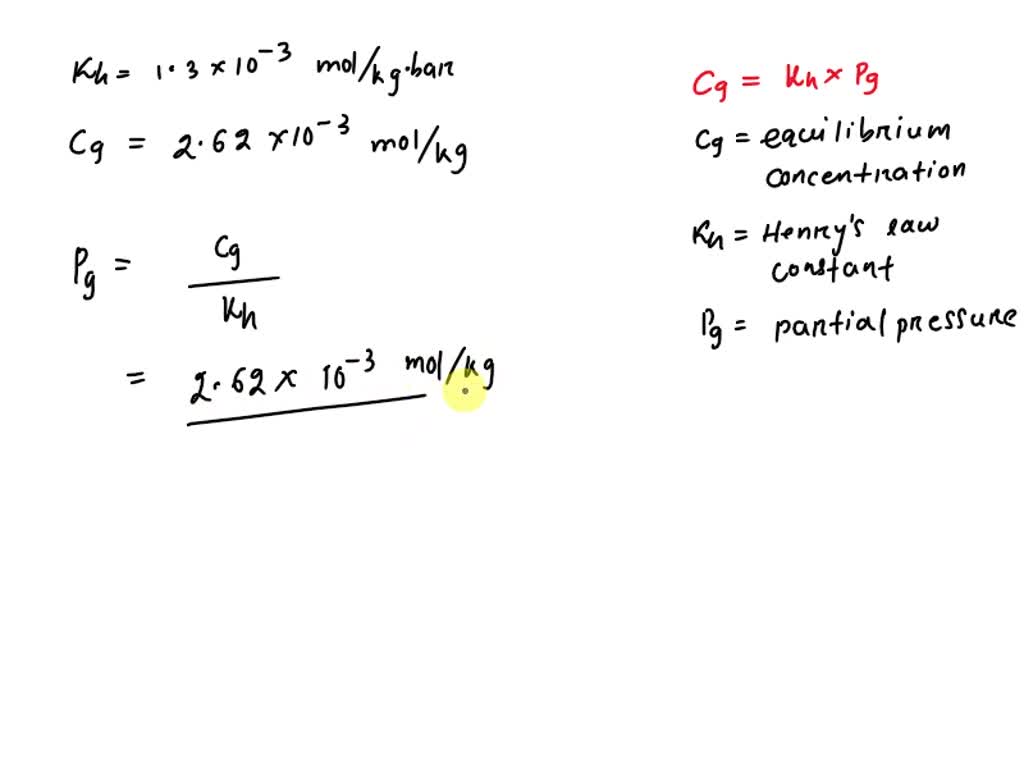 Kh = 1.3 × 10⁻³ mol/kg.bar
Cg = 2.62 × 10⁻³ mol/kg
Pg = Cg
Kh
= 2.62 × 10⁻³ mol/kg
Cg = Kh × Pg
Cg = equilibrium
concentration
Kh = Henry's law
constant
Pg = partial pressure